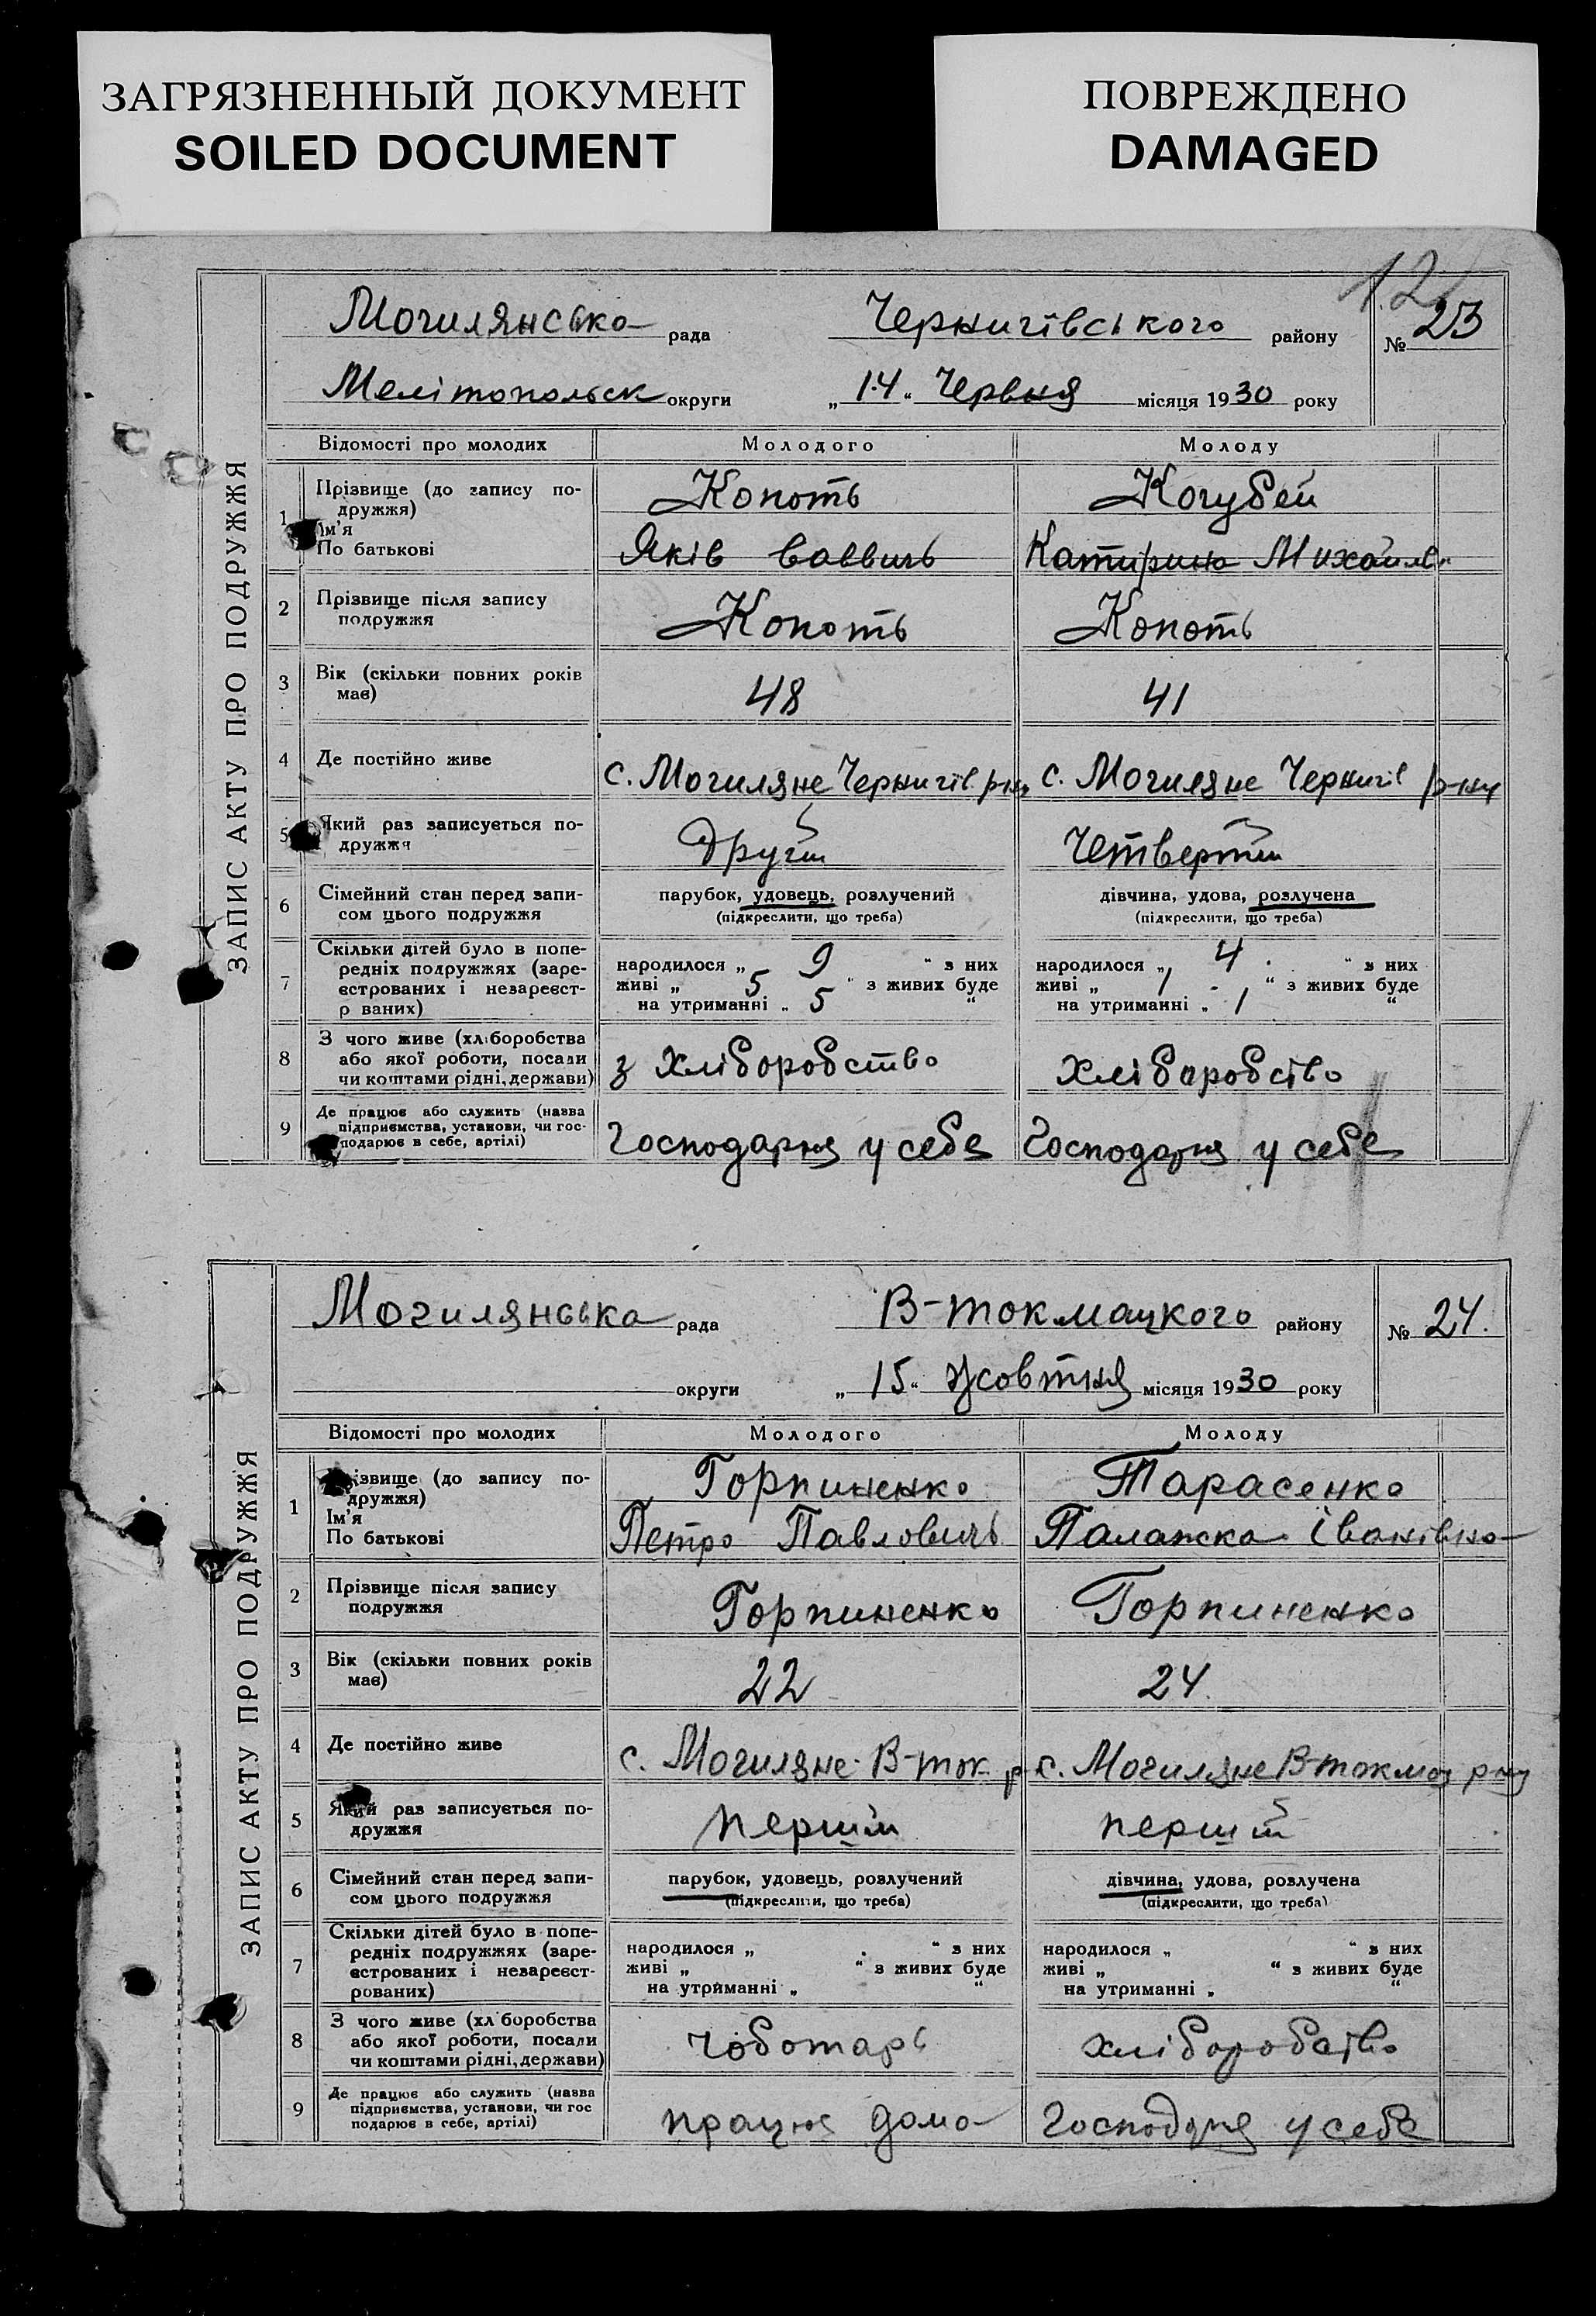 ЗАГРЯЗНЕННЫЙ ДОКУМЕНТ
SOILED DOCUMENT
ПОВРЕЖДЕНО
DAMAGED
12
ЗАПИС АКТУ ПРО ПОДРУЖЖЯ
Могилянська рада Чернигівського району № 23
Мелітопольск округи „14“ Червня місяця 1930 року
Відомості про молодих Молодого Молоду
1 Прізвище (до запису по- Копоть Кочубей
дружжя)
Ім’я
По батькові Яків Саввичь Катирина Михайлв.
2 Прізвище після запису
подружжя Копоть Копоть
3 Вік (скільки повних років
має) 48 41
4 Де постійно живе с. Могиляне Чернигів р-ну с. Могиляне Чернигів р-ну
5 Який раз записується по-
дружжя Другій Четвертій
6 Сімейний стан перед запи- парубок, удовець, розлучений дівчина, удова, розлучена
сом цього подружжя (підкреслити, що треба) (підкреслити, що треба)
7 Скільки дітей було в попе-
редніх подружжях (заре- народилося „ 9 “ з них народилося „ 4 “ з них
єстрованих і незареєст- живі „ 5 “ з живих буде живі „ 1 “ з живих буде
р ваних) на утриманні „ 5 “ на утриманні „ 1 “
8 З чого живе (хліборобства
або якої роботи, посади з хліборобство хліборобство
чи коштами рідні, держави)
9 Де працює або служить (назва
підприємства, установи, чи гос- Господарня у себя Господарня у себе
подарює в себе, артілі)
ЗАПИС АКТУ ПРО ПОДРУЖЖЯ
Могилянська рада В-токмацкого району № 24.
округи „15“ жовтня місяця 1930 року
Відомості про молодих Молодого Молоду
1 ізвище (до запису по- Горпиненко Тарасенко
дружжя)
Ім’я
По батькові Петро Павловичь Палажка Іванівна
2 Прізвище після запису
подружжя Горпиненко Горпиненко
3 Вік (скільки повних років
має) 22 24.
4 Де постійно живе с. Могиляне В-ток р- с. Могиляне В-токмац р-ну
5 Який раз записується по-
дружжя першій першій
6 Сімейний стан перед запи- парубок, удовець, розлучений дівчина, удова, розлучена
сом цього подружжя (підкреслити, що треба) (підкреслити, що треба)
7 Скільки дітей було в попе-
редніх подружжях (заре- народилося „ “ з них народилося „ “ з них
єстрованих і незареєст- живі „ “ з живих буде живі „ “ з живих буде
рованих) на утриманні „ “ на утриманні „ “
8 З чого живе (хл боробства
або якої роботи, посади чоботарь хліборобство
чи коштами рідні, держави)
9 Де працює або служить (назва
підприємства, установи, чи гос працює дома Господарня у себе
подарює в себе, артілі)